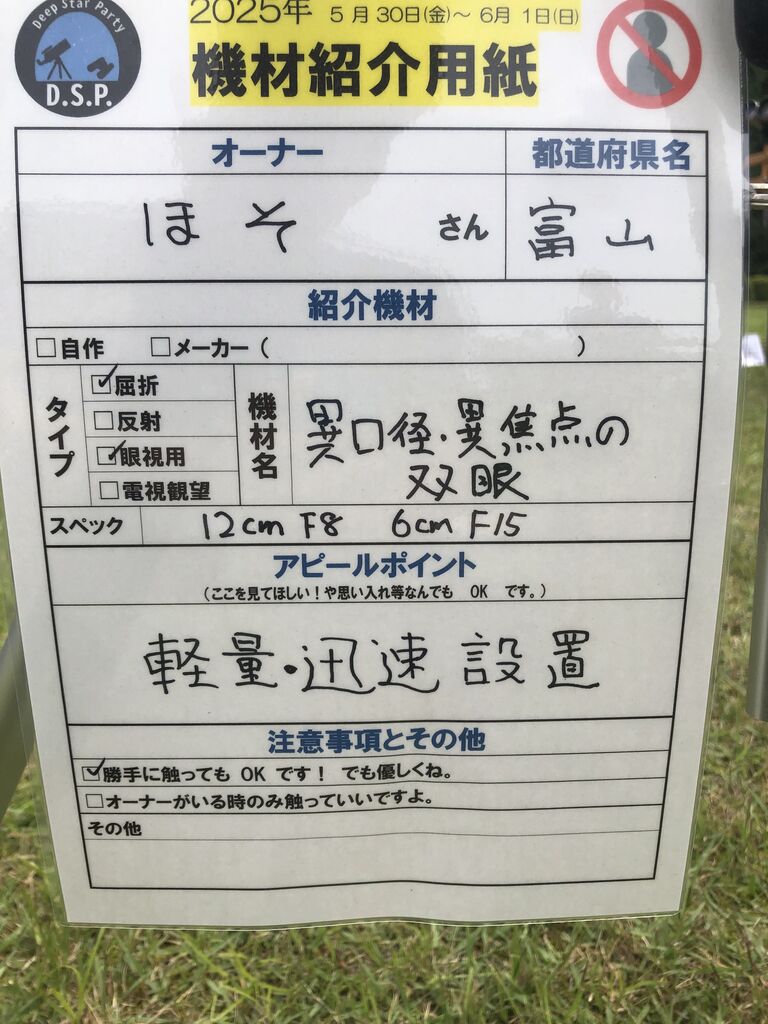 Deep Star Party
D.S.P.
2025年 5月30日(金)～ 6月 1日(日)
機材紹介用紙
オーナー 都道府県名
ほそ さん 富山
紹介機材
□自作 □メーカー（ ）
タイプ
☑屈折
□反射
☑眼視用
□電視観望
機材名
異口径・異焦点の
双眼
スペック 12cm F8 6cm F15
アピールポイント
（ここを見てほしい！や思い入れ等なんでも OK です。）
軽量・迅速設置
注意事項とその他
☑勝手に触っても OK です！ でも優しくね。
□オーナーがいる時のみ触っていいですよ。
その他